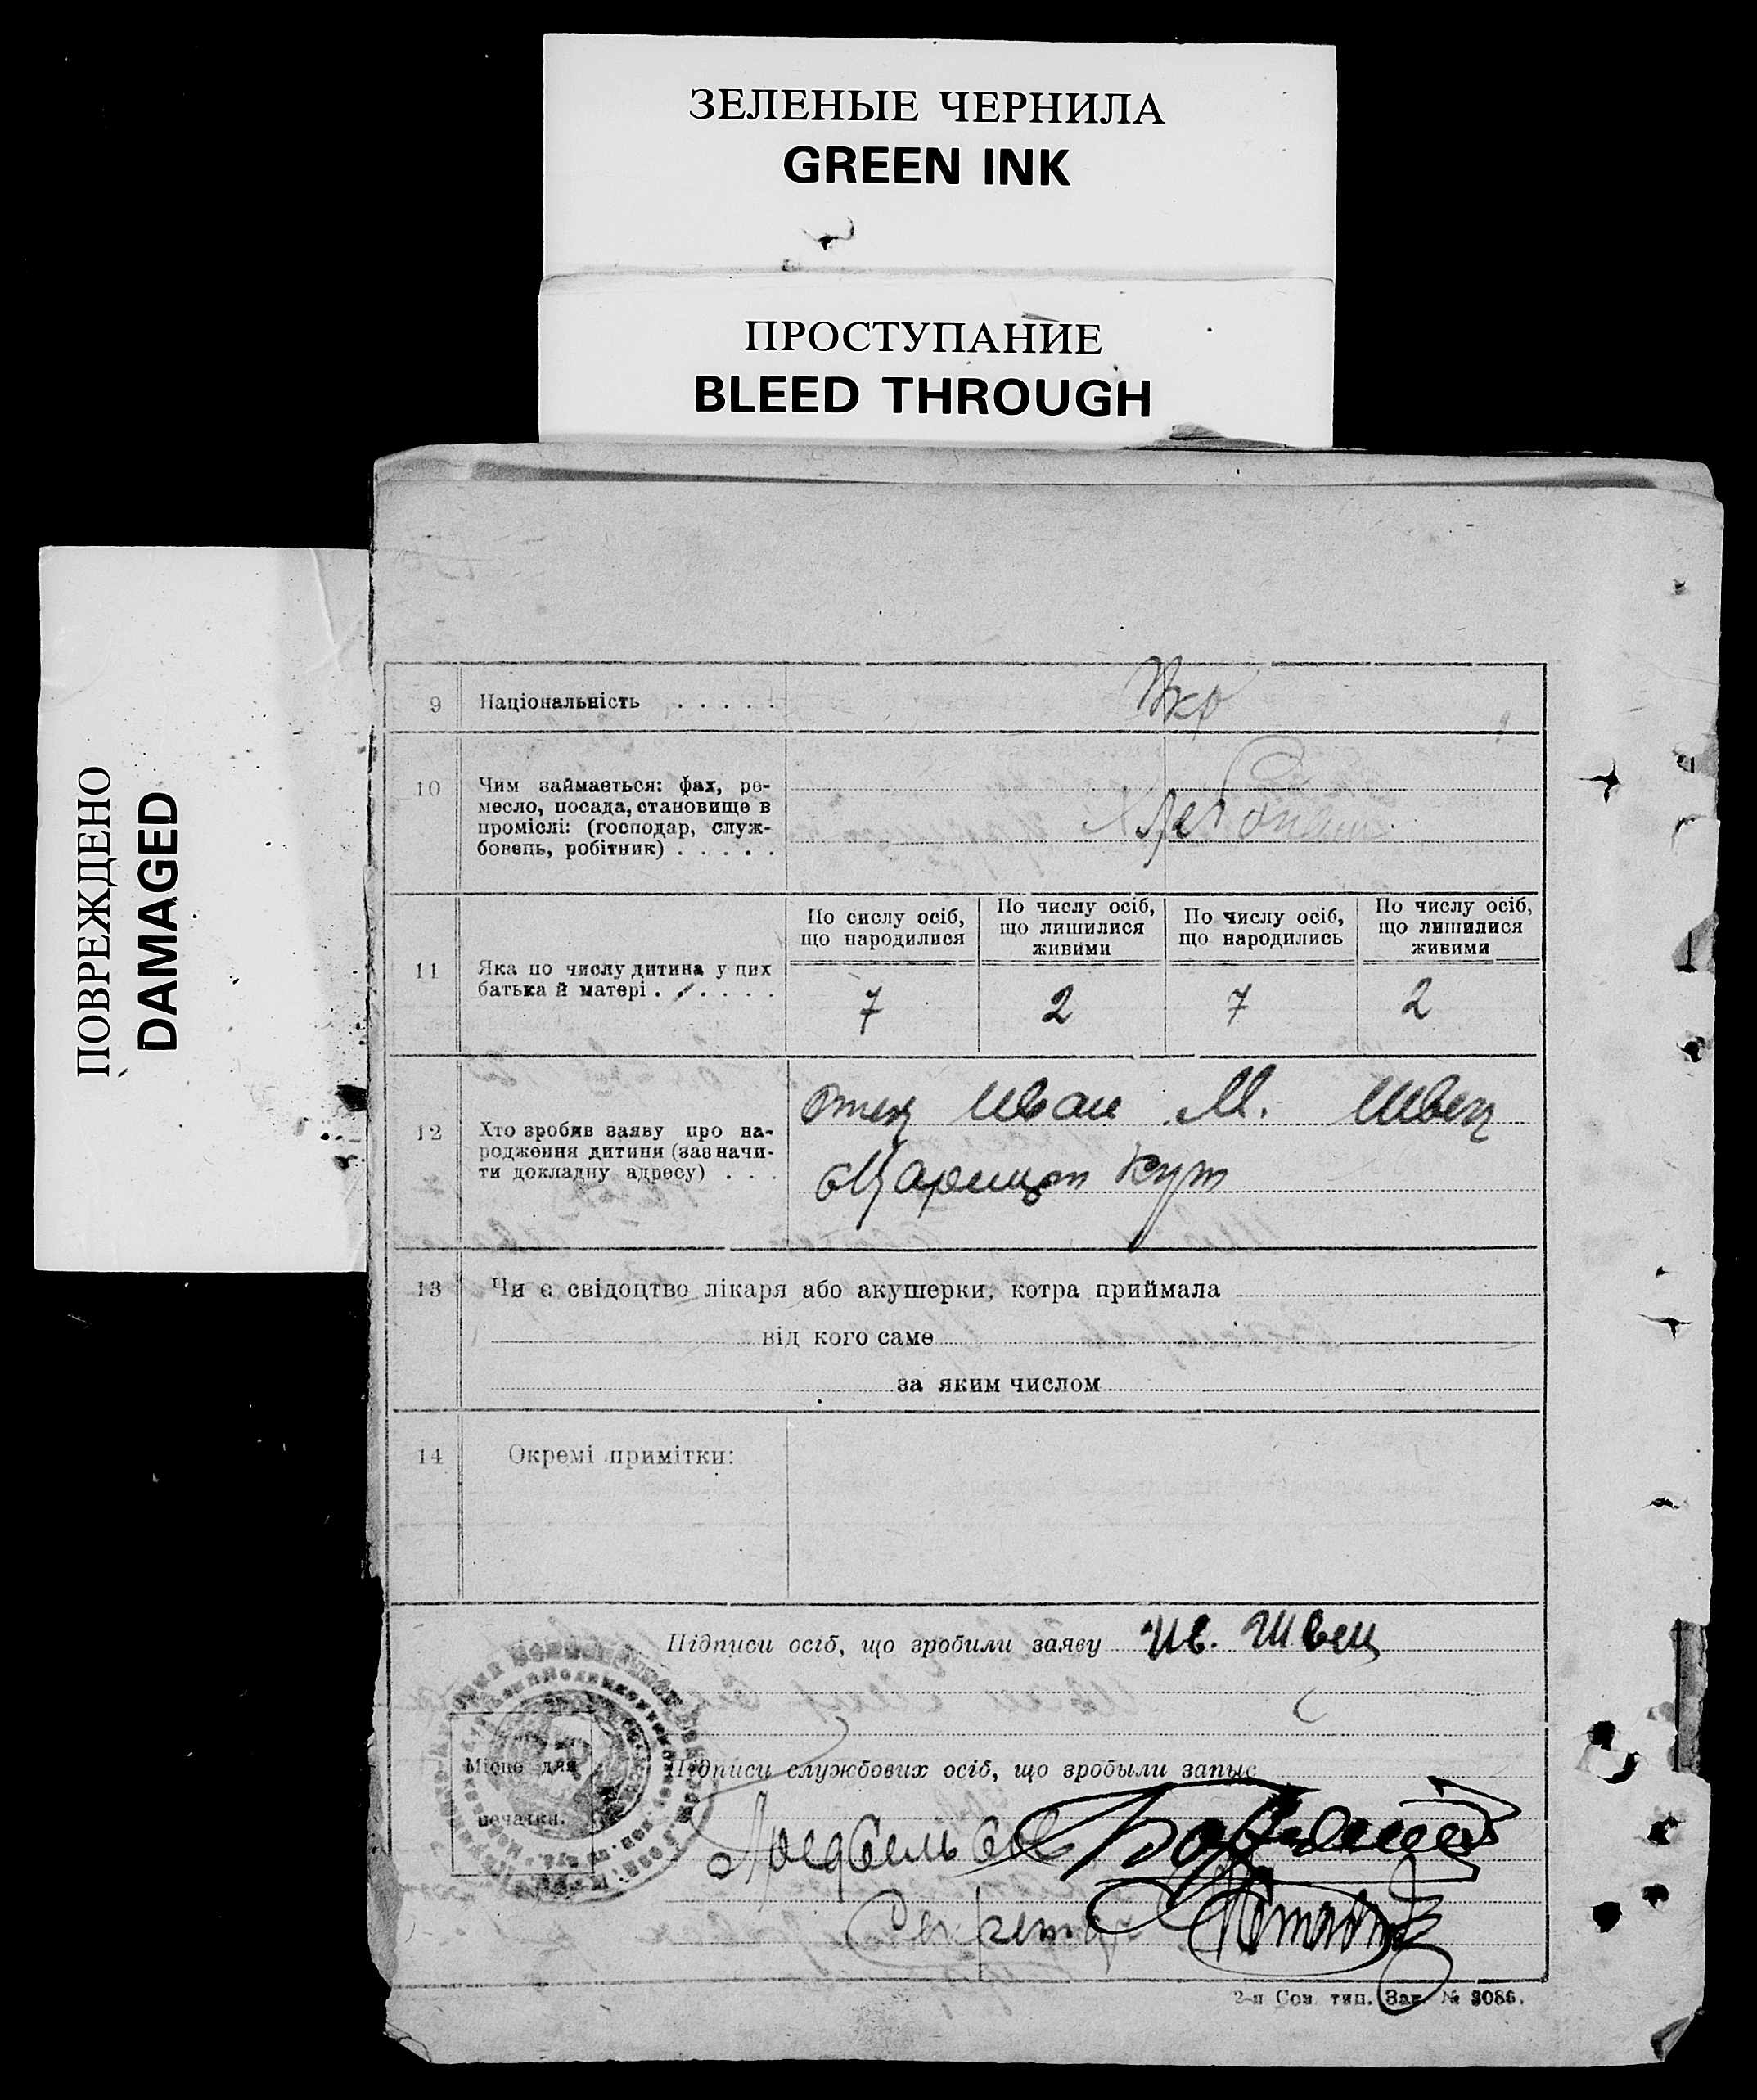 ЗЕЛЕНЫЕ ЧЕРНИЛА
GREEN INK
ПРОСТУПАНИЕ
BLEED THROUGH
ПОВРЕЖДЕНО
DAMAGED
9 Національність . . . . . Укр
10 Чим займається: фах, ре-
месло, посада, становище в
проміслі: (господар, служ-
бовець, робітник) . . . . .
Хлебопаш
11 Яка по числу дитина у цих
батька й матері . . . . . .
По сислу осіб,
що народилися
По числу осіб,
що лишилися
живими
По числу осіб,
що народились
По числу осіб,
що лишилися
живими
7 2 7 2
12 Хто зробив заяву про на-
родження дитини (зазначи-
ти докладну адресу) . . .
отец Иван М. Швец
Кут
13 Чи є свідоцтво лікаря або акушерки, котра приймала
від кого саме
за яким числом
14 Окремі примітки:
Підписи осіб, що зробили заяву Ив. Швец
Місце для
печатки.
Підписи службових осіб, що зробыли запыс
Секретар
2-я Сов. тип. Зак. № 3086.